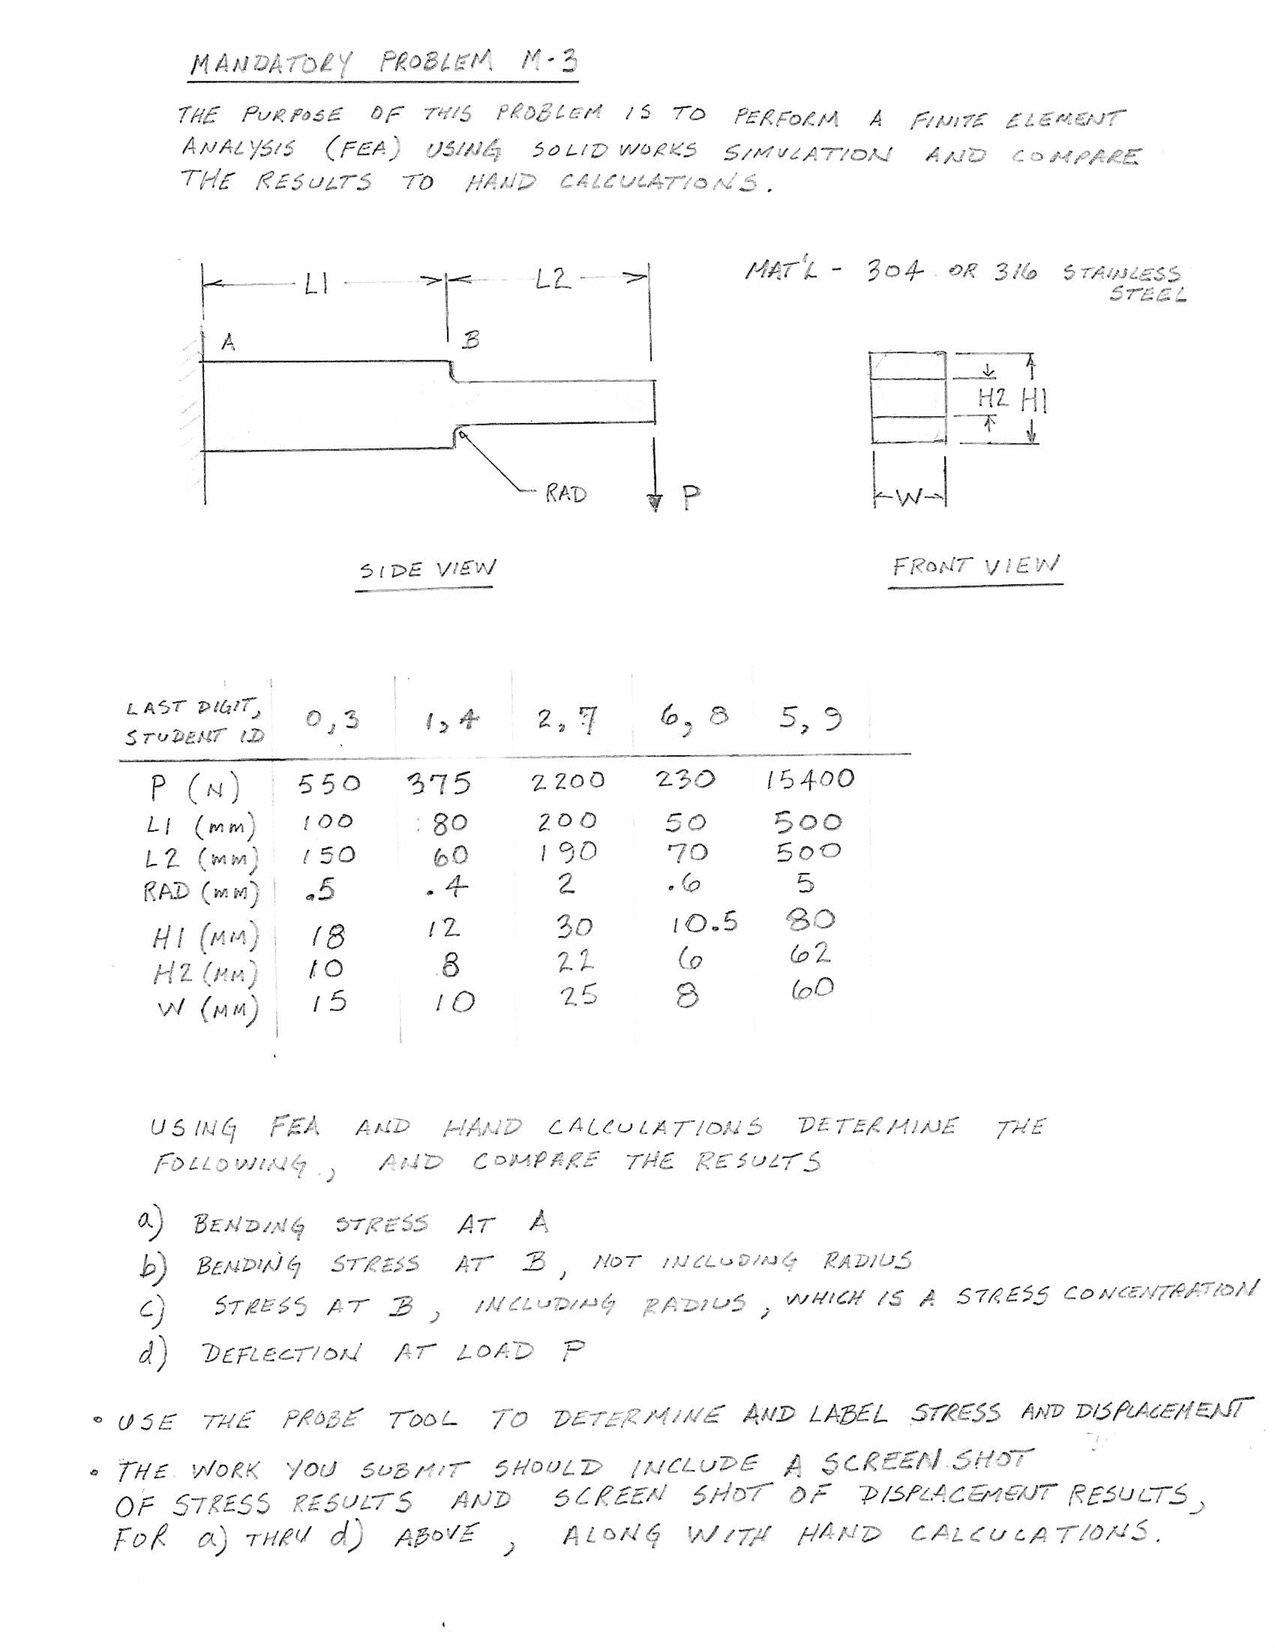 MANDATORY PROBLEM M-3
THE PURPOSE OF THIS PROBLEM IS TO PERFORM A FINITE ELEMENT
ANALYSIS (FEA) USING SOLIDWORKS SIMULATION AND COMPARE
THE RESULTS TO HAND CALCULATIONS.
L1 L2 MAT'L - 304 OR 316 STAINLESS
STEEL
A B
H2 H1
RAD P W
SIDE VIEW FRONT VIEW
LAST DIGIT, STUDENT ID 0,3 1,4 2,7 6,8 5,9
P (N) 550 375 2200 230 15400
L1 (mm) 100 80 200 50 500
L2 (mm) 150 60 190 70 500
RAD (mm) .5 .4 2 .6 5
H1 (MM) 18 12 30 10.5 80
H2 (MM) 10 8 22 6 62
W (MM) 15 10 25 8 60
USING FEA AND HAND CALCULATIONS DETERMINE THE
FOLLOWING, AND COMPARE THE RESULTS
a) BENDING STRESS AT A
b) BENDING STRESS AT B, NOT INCLUDING RADIUS
c) STRESS AT B, INCLUDING RADIUS, WHICH IS A STRESS CONCENTRATION
d) DEFLECTION AT LOAD P
• USE THE PROBE TOOL TO DETERMINE AND LABEL STRESS AND DISPLACEMENT
• THE WORK YOU SUBMIT SHOULD INCLUDE A SCREEN SHOT
OF STRESS RESULTS AND SCREEN SHOT OF DISPLACEMENT RESULTS,
FOR a) THRU d) ABOVE, ALONG WITH HAND CALCULATIONS.